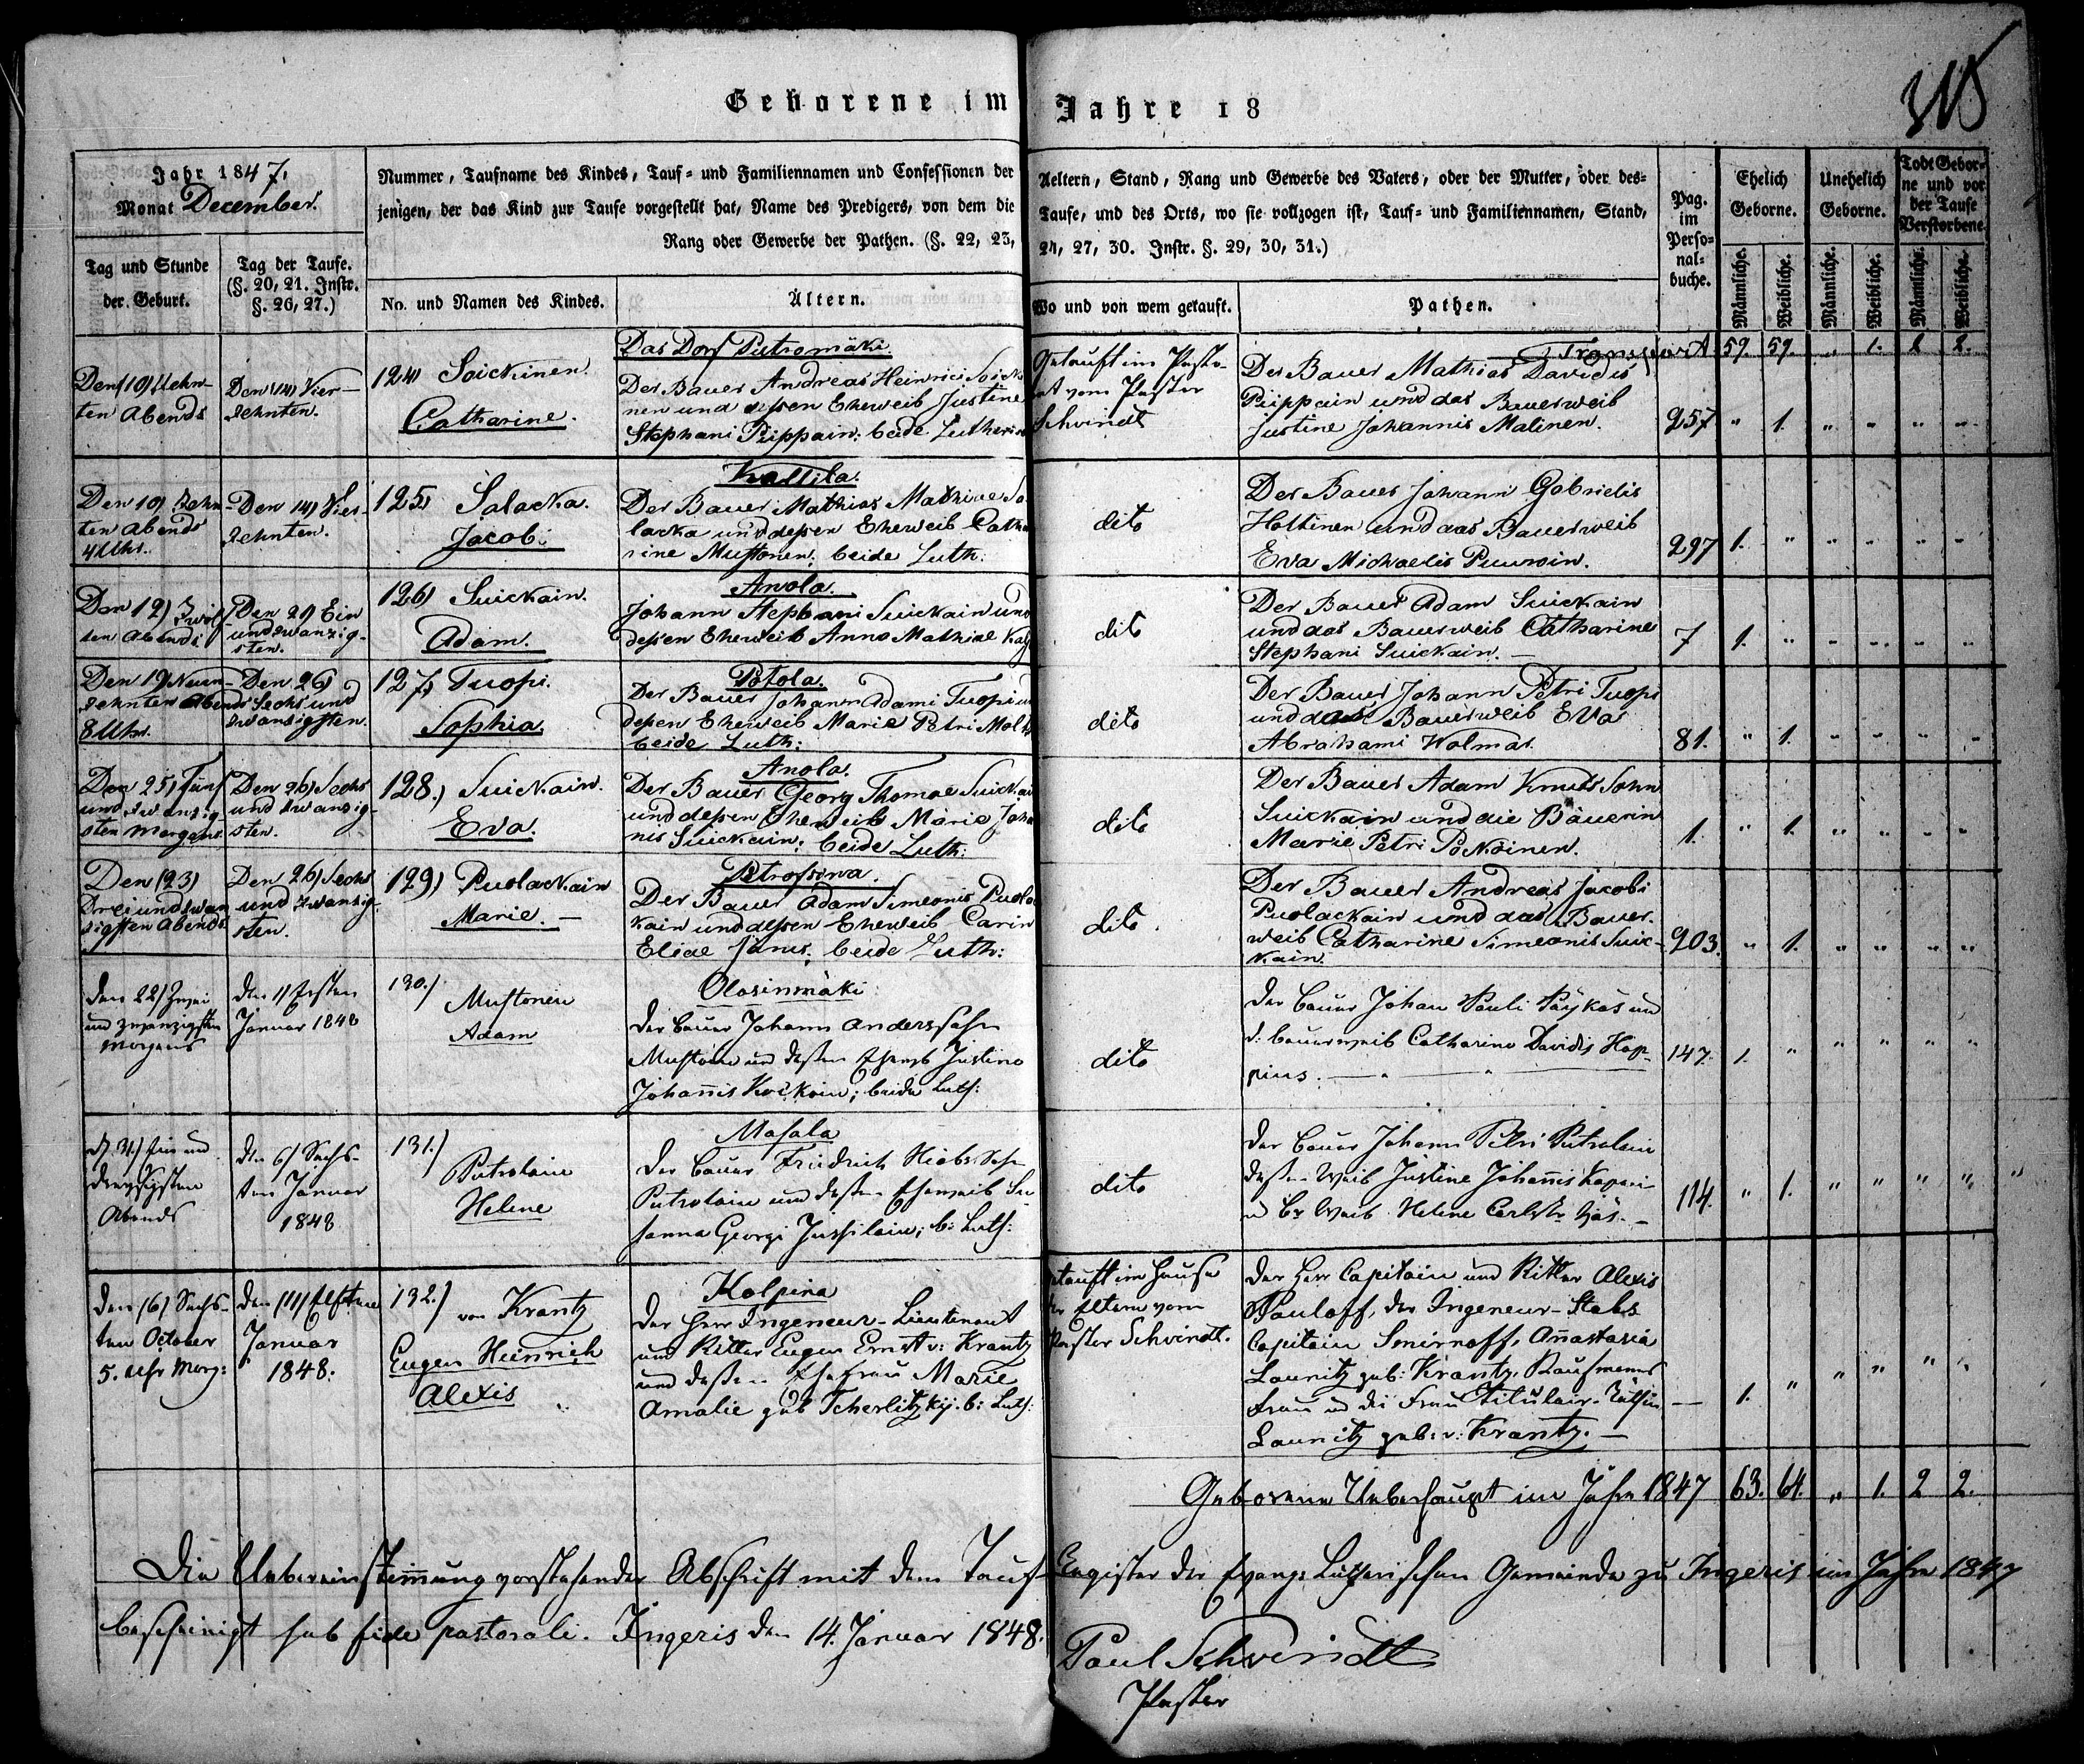 Geborene im Jahre 18
318
Jahr 1847.
Monat December.
Tag und Stunde
der Geburt.
Tag der Taufe.
(§. 20, 21. Instr.
§. 26, 27.)
Nummer, Taufname des Kindes, Tauf= und Familiennamen und Confessionen der
jenigen, der das Kind zur Taufe vorgestellt hat, Name des Predigers, von dem die
Rang oder Gewerbe der Pathen. (§. 22, 23,
No. und Namen des Kindes.
Ältern.
Aeltern, Stand, Rang und Gewerbe des Vaters, oder der Mutter, oder des=
Taufe, und des Orts, wo sie vollzogen ist, Tauf= und Familiennamen, Stand,
24, 27, 30. Instr. §. 29, 30, 31.)
Wo und von wem getauft.
Pathen.
Pag.
im
Perso=
nal=
buche.
Ehelich
Geborne.
Unehelich
Geborne.
Todt Gebor=
ne und vor
der Taufe
Verstorbene.
Männliche.
Weibliche.
Männliche.
Weibliche.
Männliche.
Weibliche.
Transport 59. 59. " 1. 2 2.
Den (10) Zehn-
ten Abends
Den (14) Vier-
zehnten.
124) Soickinen.
Catharine.
Das Dorf Pietromäki.
Der Bauer Andreas Heinrici Soicki
nen und dessen Eheweib Justine
Stephani Piippain: beide Lutherisch
Getauft im Pasto-
rat vom Pastor
Schvindt
Der Bauer Mathias Davidis
Piippain und das Bauerweib
Justine Johannis Malinen.
257 " 1. " " " "
Den 10) Zehn
ten Abends
4 Uhr.
Den 14) Vier-
zehnten.
125) Salacka.
Jacob.
Kallila.
Der Bauer Mathias Mathiae Sa-
lacka und dessen Eheweib Catha
rine Mustonen; beide Luth:
dito
Der Bauer Johann Gabrielis
Hottinen und das Bauerweib
Eva Michaelis Puuroin.
297 1. " " " " "
Den 12) Zwölf
ten Abends
Den 21) Ein
und zwanzig-
sten.
126) Suickain.
Adam.
Anola.
Johann Stephani Suickain und
dessen Eheweib Anna Mathiae
dito
Der Bauer Adam Suickain
und das Bauerweib Catharine
Stephani Suickain.
7 1. " " " " "
Den 19 Neun-
zehnten Abends
8 Uhr.
Den 26)
Sechs und
zwanzigsten.
127) Tuopi.
Sophia.
Potola.
Der Bauer Johann Adami Tuopi u
dessen Eheweib Marie Petri
beide Luth:
dito
Der Bauer Johann Petri Tuopi
und das Bauerweib Eva
Abrahami Wolmar.
81. " 1. " " " "
Den 25) Fünf
und zwanzig
sten Morgens
Den 26) Sechs
und zwanzig-
sten.
128.) Suickain.
Eva.
Anola.
Der Bauer Georg Thomae Suickai
und dessen Eheweib Marie Joha
nis Suickain; beide Luth:
dito
Der Bauer Adam Knuts Sohn
Suickain und die Bäuerin
Marie Petri Pocköinen.
1. " 1. " " " "
Den (23)
Dreiundzwan
zigsten Abends
Den 26) Sechs
und zwanzig-
sten.
129) Puolackain
Marie. —
Petrossowa.
Der Bauer Adam Simeonis Puola
kain und dessen Eheweib Carin
Eliae Jänis; beide Luth:
dito.
Der Bauer Andreas Jacobi
Puolackain und das Bauer-
weib Catharine Simeonis Suic-
kain.
203. " 1. " " " "
Den 22) Zwei
und zwanzigsten
Morgens
Den 1) Ersten
Januar 1848
130.) Mustonen
Adam
Olosinmäki
Der Bauer Johann Anderssohn
Mustoin und dessen Eheweib Justina
Johannis Kockoin; beide Luth:
dito
Der Bauer Johan Pauli Päykäs und
d: Bauerweib Catharina Davidis Hap-
pius.
147. 1. " " " " "
d 31.) Ein und
dreissigsten
Abends
Den 6) Sechs-
ten Januar
1848
131.) Putrolain
Helene
Masala
Der Bauer Friedrich Hiobs Sohn
Putrolain und dessen Eheweib Su-
sanna Georgi Jussilain; b: Luth:
dito
Der Bauer Johann Petri Putrolain
dessen Weib Justine Johannis
Weib Helene
114. " 1. " " " "
Den (6) Sechs-
ten October
5. Uhr Morg:
Den (11) Elften
Januar
1848.
132.) von Krantz
Eugen Heinrich
Alexis
Kolpina
Der Herr Ingeneur-Lieutenant
und Ritter Eugen Ernst v: Krantz
und dessen Ehefrau Marie
Amalie geb Tcherlitzkij. b: Luth:
Getauft im Hause
der Eltern vom
Pastor Schvindt.
Der Herr Capitain und Ritter Alexis
Pauloff, der Ingeneur-Stabs
Capitain Smirnoff, Anastasia
Launitz geb: Krantz, Kaufmanns
Frau und die Frau Titulair-Räthin
Launitz geb: v: Krantz. —
— 1. " " " " "
Geborene Ueberhaupt im Jahre 1847 63. 64. " 1. 2 2.
Die Uebereinstimmung vorstehender Abschrift mit dem Tauf-Register der Evang: Lutherischen Gemeinde zu Ingeris im Jahre 1847
bescheinigt sub fide pastorali. Ingeris den 14. Januar 1848.
Paul Schvindt
Pastor